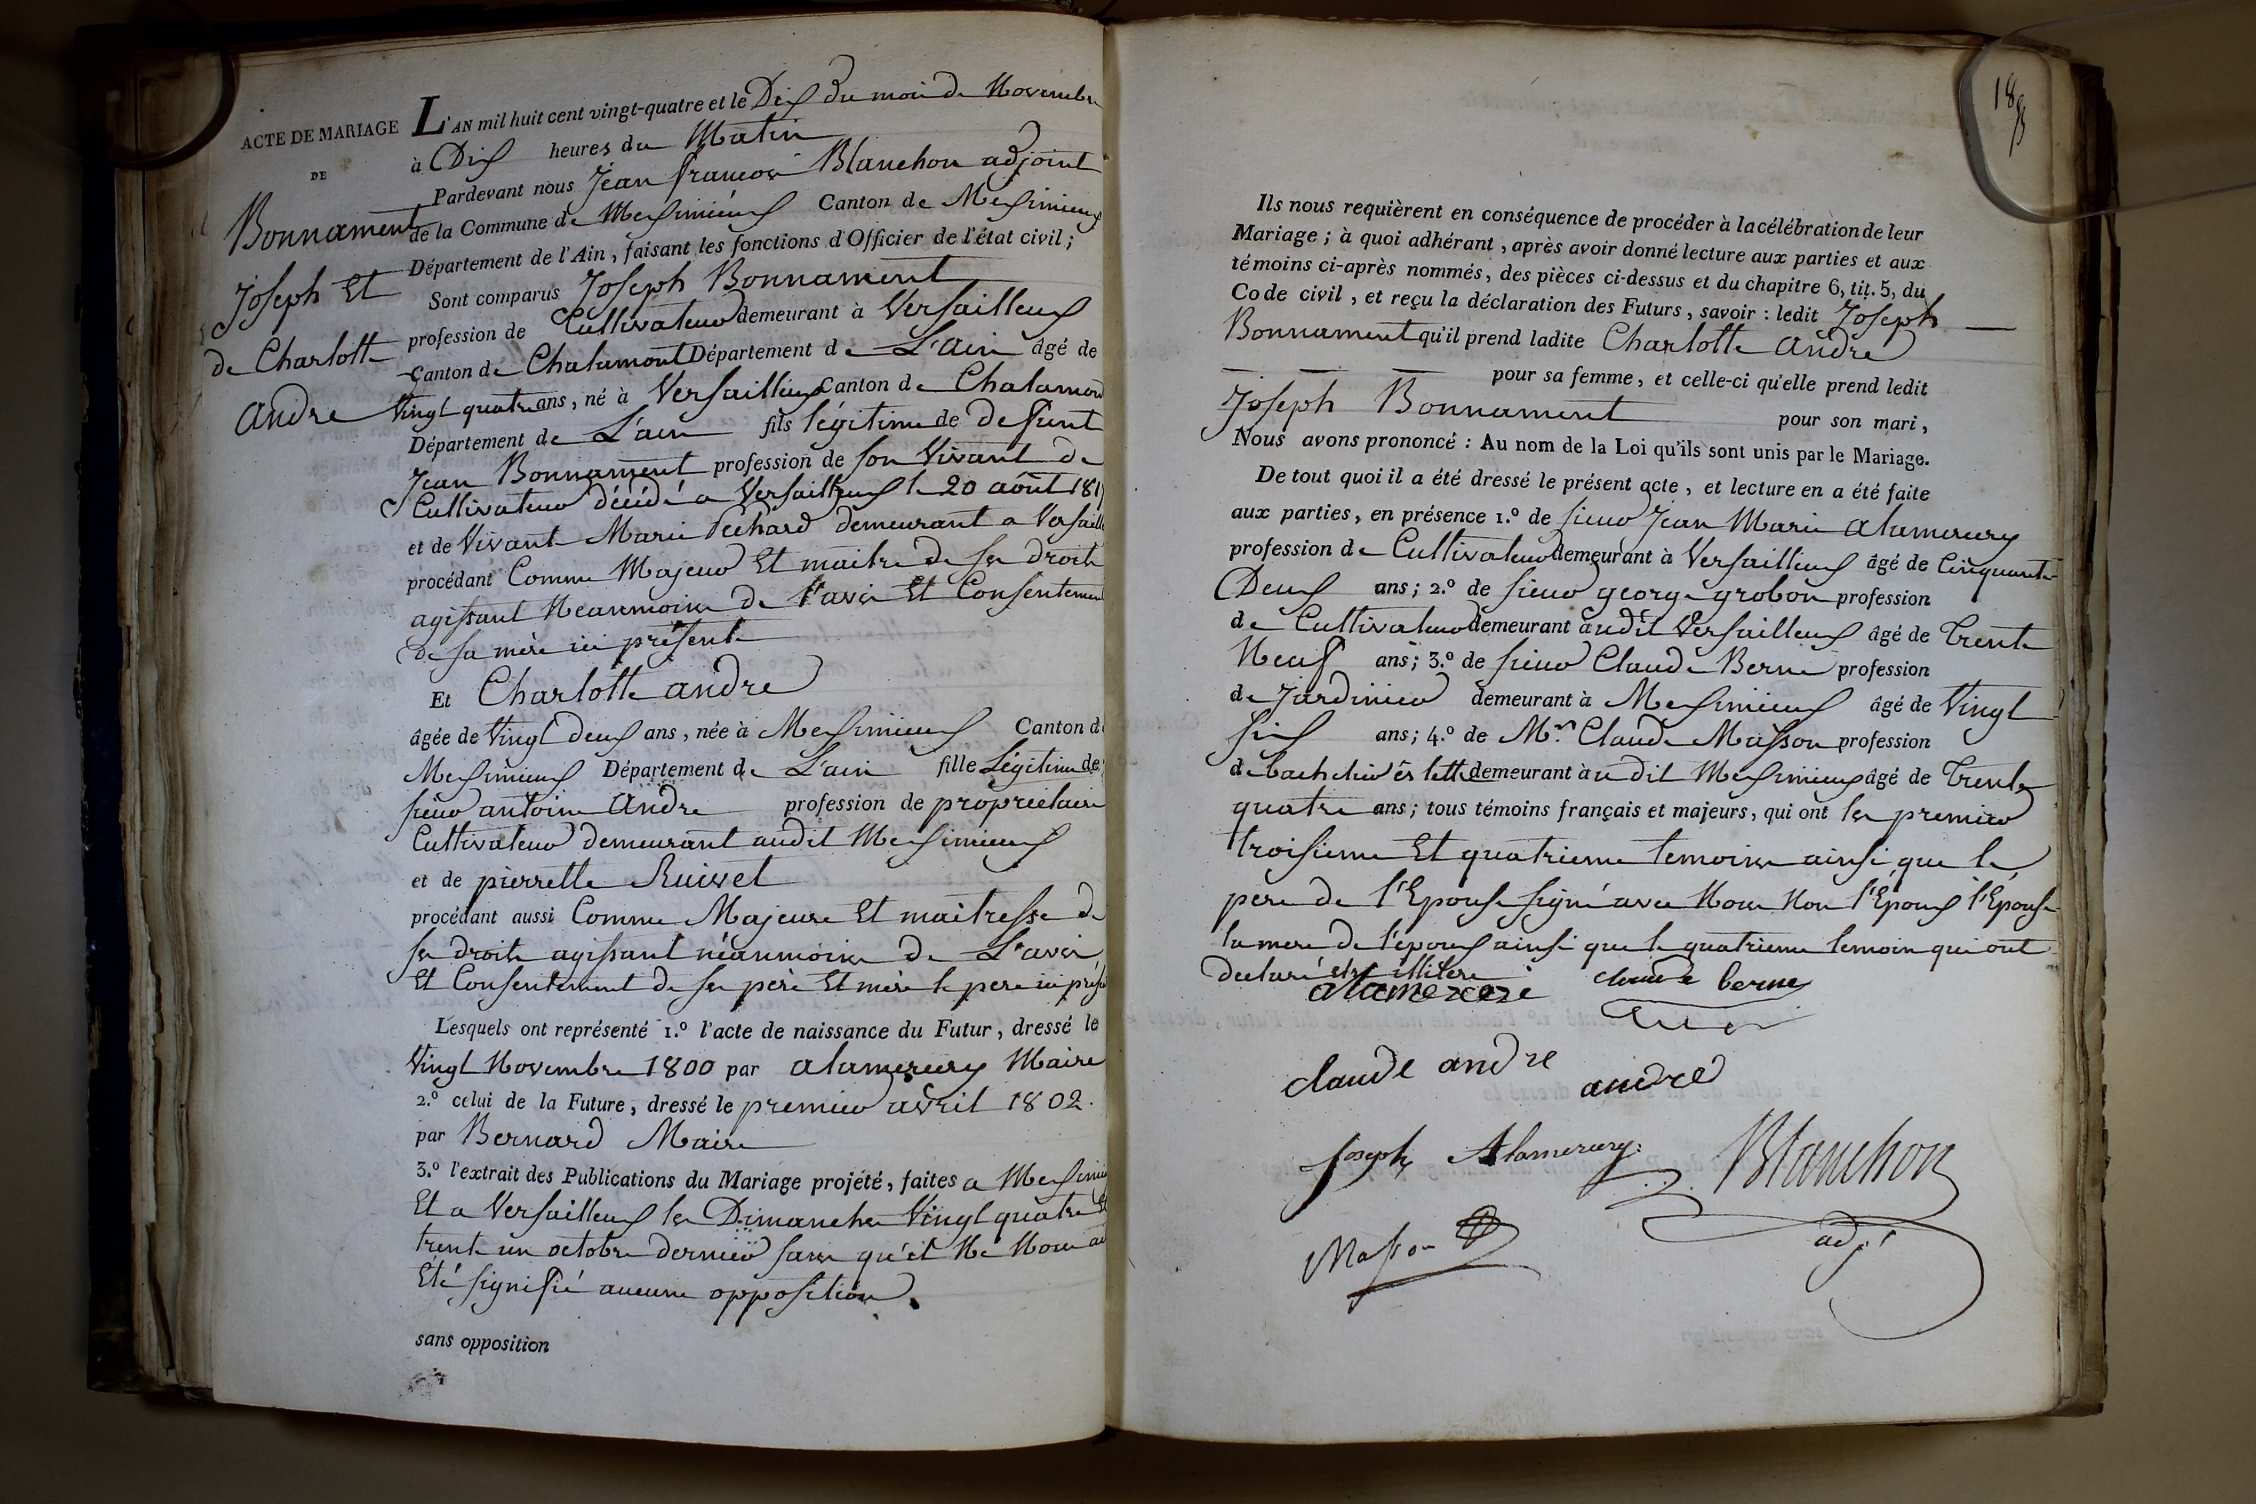 ACTE DE MARIAGE
DE
Bonnament
Joseph Et
de Charlotte
andre
L'AN mil huit cent vingt-quatre et le Dix du mois de Novembre
à Dix heures du Matin
Pardevant nous Jean françois Blanchon adjoint
de la Commune de Meximieux Canton de Meximieux
Département de l'Ain, faisant les fonctions d'Officier de l'état civil;
Sont comparus Joseph Bonnament
profession de Cultivateur demeurant à Versailleux
Canton de Chalamont Département de L'ain âgé de
Vingt quatre ans, né à Versailleux Canton de Chalamont
Département de L'ain fils légitime de defunt
Jean Bonnament profession de son Vivant de
Cultivateur décédé a Versailleux le 20 août 181
et de Vivante Marie demeurant a Versaille
procédant Comme Majeur Et maitre de ses droits
agissant Neanmoins de l'avis Et Consentement
de sa mère ici présente
Et Charlotte andre
âgée de Vingt deux ans, née à Meximieux Canton de
Meximieux Département de L'ain fille Légitime de
sieur antoine andre profession de propriétaire
Cultivateur demeurant audit Meximieux
et de pierrette Ruivet
procédant aussi Comme Majeure Et maitresse de
ses droits agissant néanmoins de L'avis
Et Consentement de ses père Et mère le pere ici prése
Lesquels ont représenté 1.º l'acte de naissance du Futur, dressé le
Vingt Novembre 1800 par alamercery Maire
2.º celui de la Future, dressé le premier avril 1802.
par Bernard Maire
3.º l'extrait des Publications du Mariage projété, faites a Meximieu
Et a Versailleux les Dimanches Vingt quatre Et
trente un octobre dernier sans qu'il Ne Nous ai
Eté signifié aucune opposition.
sans opposition
Ils nous requièrent en conséquence de procéder à la célébration de leur
Mariage; à quoi adhérant, après avoir donné lecture aux parties et aux
témoins ci-après nommés, des pièces ci-dessus et du chapitre 6, tit. 5, du
Code civil, et reçu la déclaration des Futurs, savoir: ledit Joseph
Bonnament qu'il prend ladite Charlotte andre
pour sa femme, et celle-ci qu'elle prend ledit
Joseph Bonnament pour son mari,
Nous avons prononcé: Au nom de la Loi qu'ils sont unis par le Mariage.
De tout quoi il a été dressé le présent acte, et lecture en a été faite
aux parties, en présence 1.º de sieur Jean Marie alamercery
profession de Cultivateur demeurant à Versailleux âgé de Cinquante
Deux ans; 2.º de sieur george grobon profession
de Cultivateur demeurant audit Versailleux âgé de trente
Neuf ans; 3.º de sieur Claude Berne profession
de Jardinier demeurant à Meximieux âgé de Vingt
six ans; 4.º de Mr. Claude Masson profession
de bachelier ès lettre demeurant au dit Meximieux âgé de trente
quatre ans; tous témoins français et majeurs, qui ont les premier
troisieme Et quatrieme temoins ainsi que le
pere de l'Epouse signé avec Nous Non l'Epoux l'Epouse
la mere de l'époux ainsi que le quatrieme temoin qui ont
declaré etre illitere
claude berne
claude andre
andre
Joseph Alamercery
Blanchon
adjt
Masson